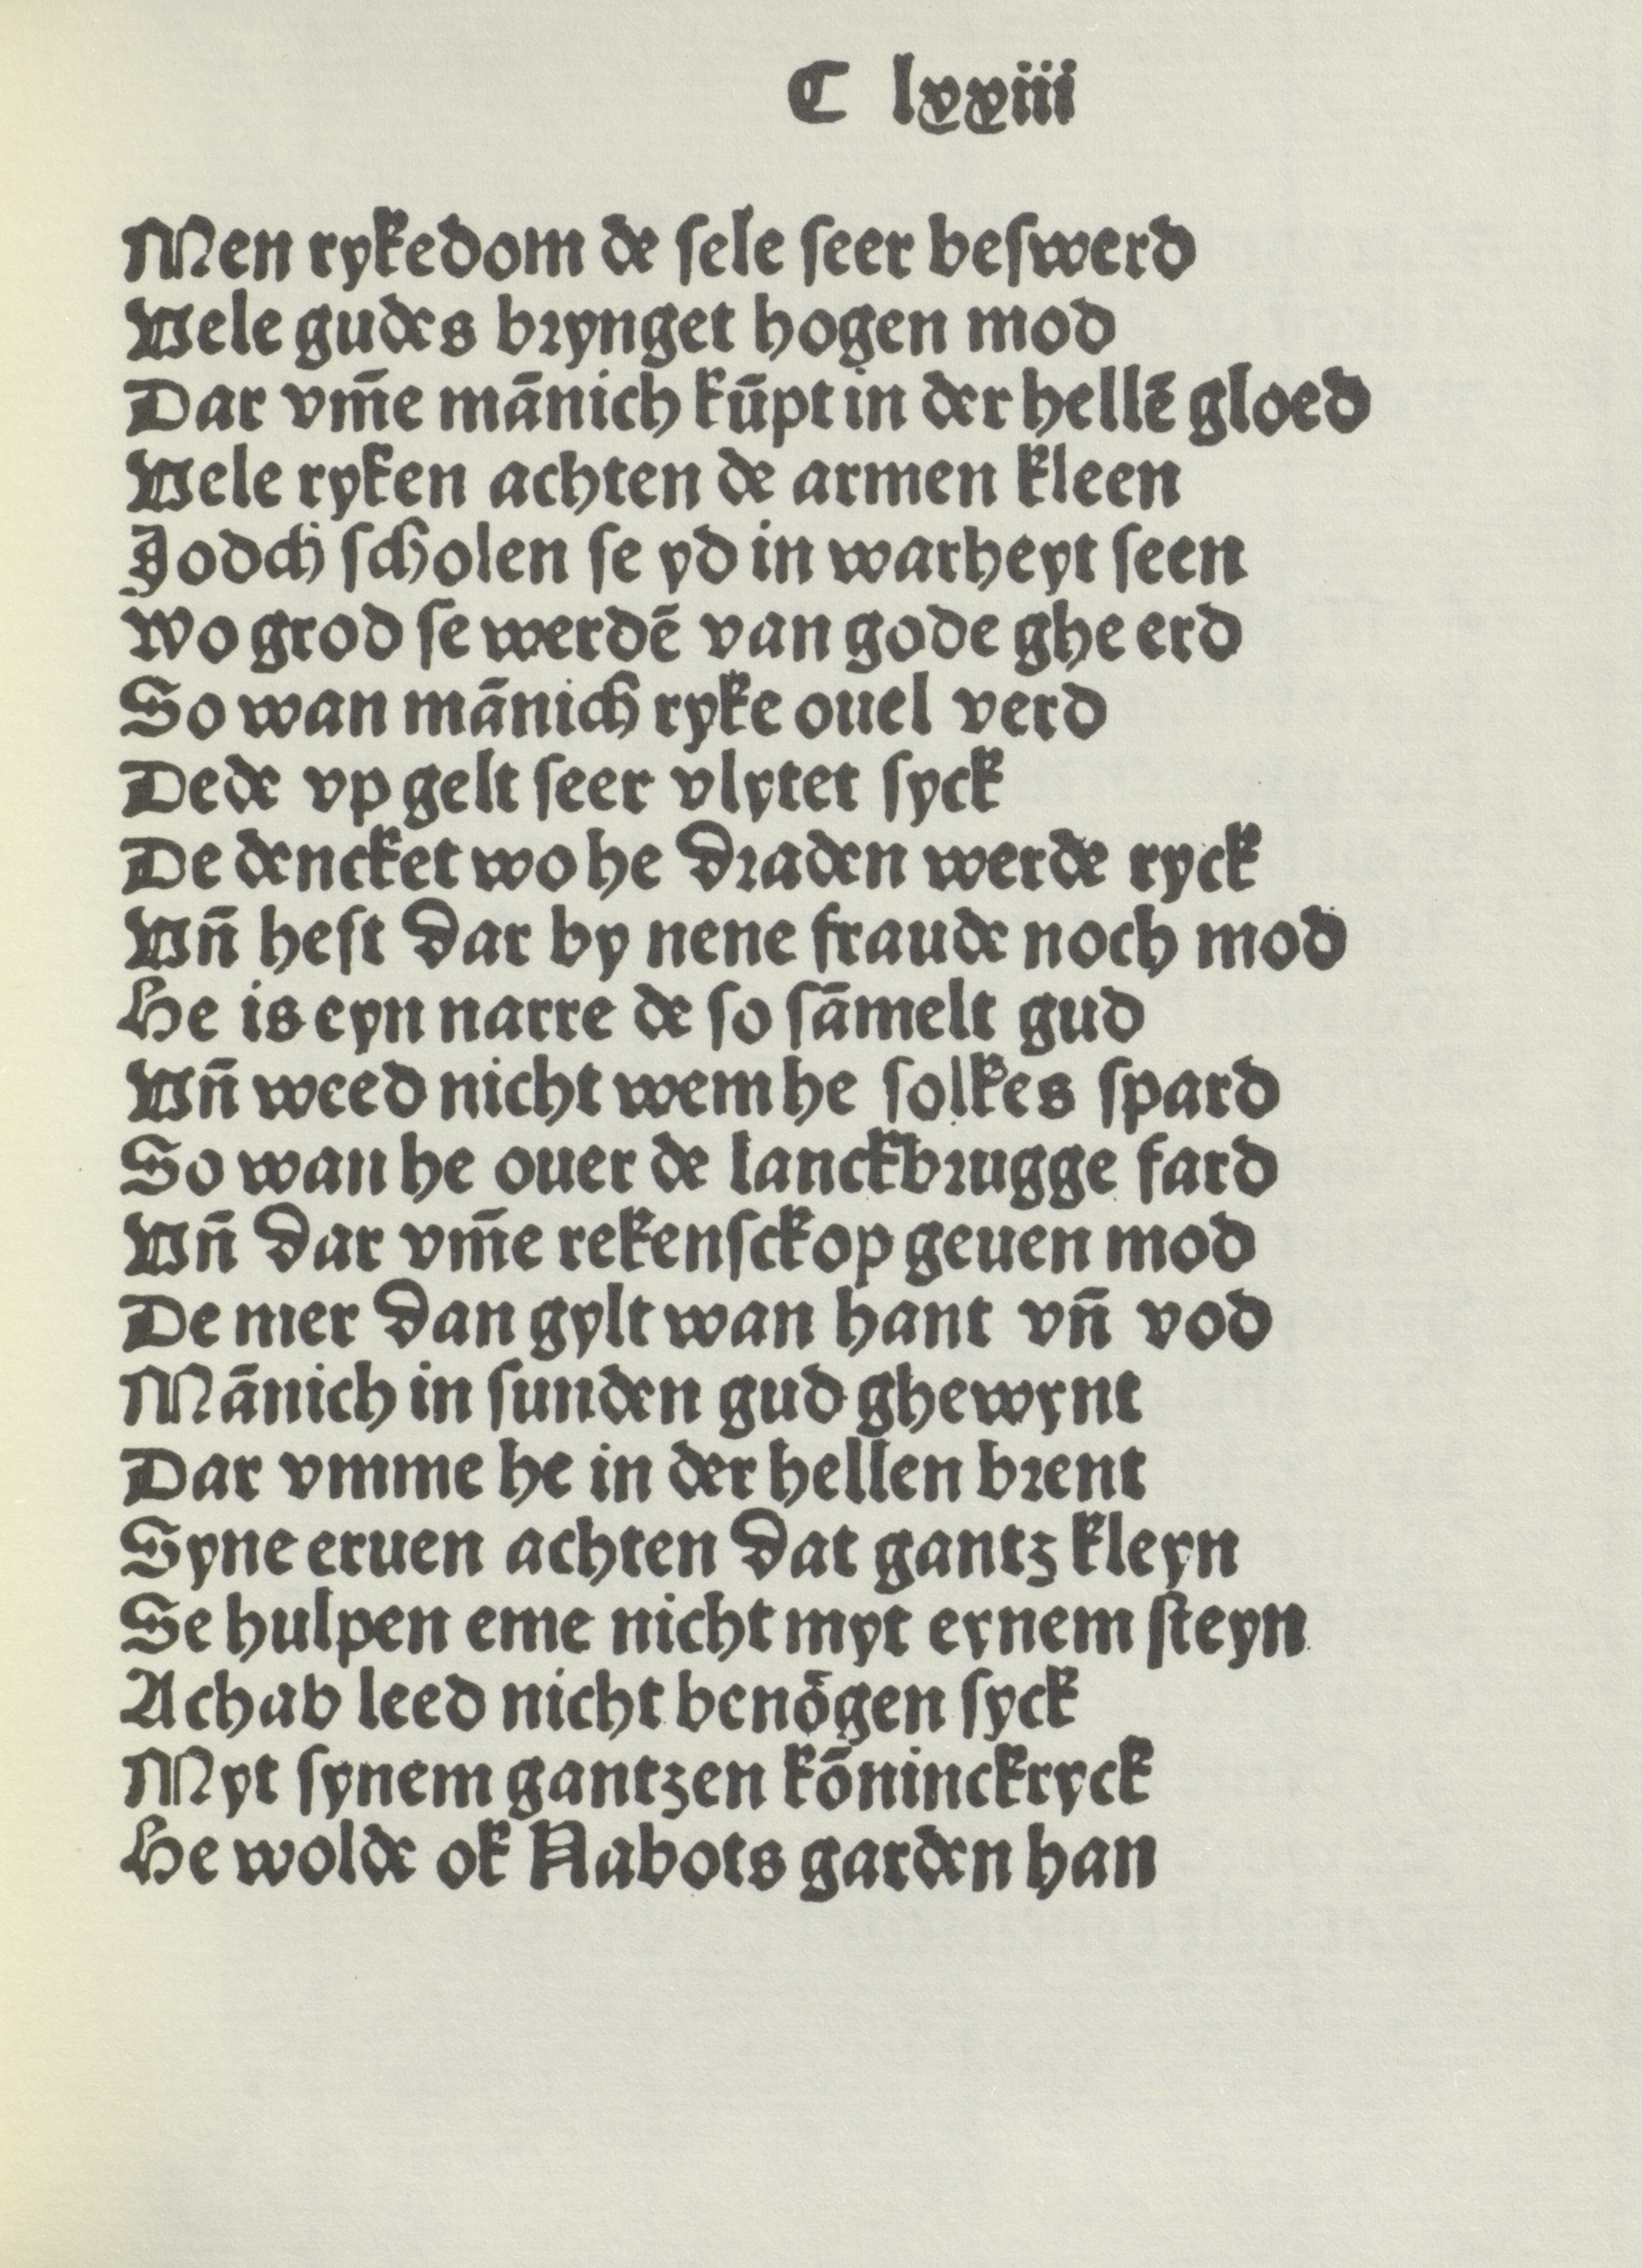 C lxxiii
Men rykedom de sele seer beswerd
Vele gudes brynget hogen mod
Dar vm̄e mānich kūpt in der hellē gloed
Vele ryken achten de armen kleen
Jodch scholen se yd in warheyt seen
Wo grod se werdē van gode ghe erd
So wan mānich ryke ouel verd
Dede vp gelt seer vlytet syck
De dencket wo he draden werde ryck
Vn̄ hest dar by nene fraude noch mod
He is eyn narre de so sāmelt gud
Vn̄ weed nicht wem he solkes spard
So wan he ouer de lanckbrugge fard
Vn̄ dar vm̄e rekensckop geuen mod
De mer dan gylt wan hant vn̄ vod
Mānich in sunden gud ghewynt
Dar vmme he in der hellen brent
Syne eruen achten dat gantz kleyn
Se hulpen eme nicht myt eynem steyn
Achab leed nicht benōgen syck
Myt synem gantzen kōninckryck
He wolde ok Nabots garden han